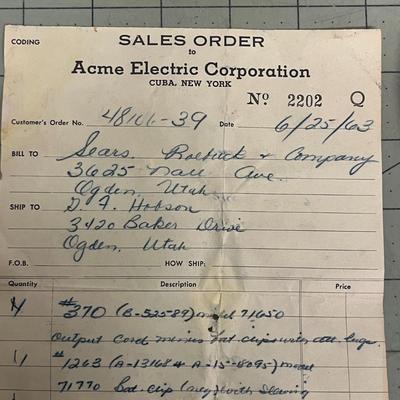 CODING
SALES ORDER
to
Acme Electric Corporation
CUBA, NEW YORK
No 2202 Q
Customer's Order No. 48166-39 Date 6/25/63
BILL TO Sears, Roebuck & Company
3625 Wall Ave.
Ogden, Utah
SHIP TO D. F. Hobson
3420 Baker Drive
Ogden, Utah
F.O.B. HOW SHIP:
Quantity Description Price
4 #370 (B-52589) model 71650
output cord minus bat. clips with lugs
11 #1263 (A-13168 & A-15-8095) model
71770 Bat. clip (assy) with